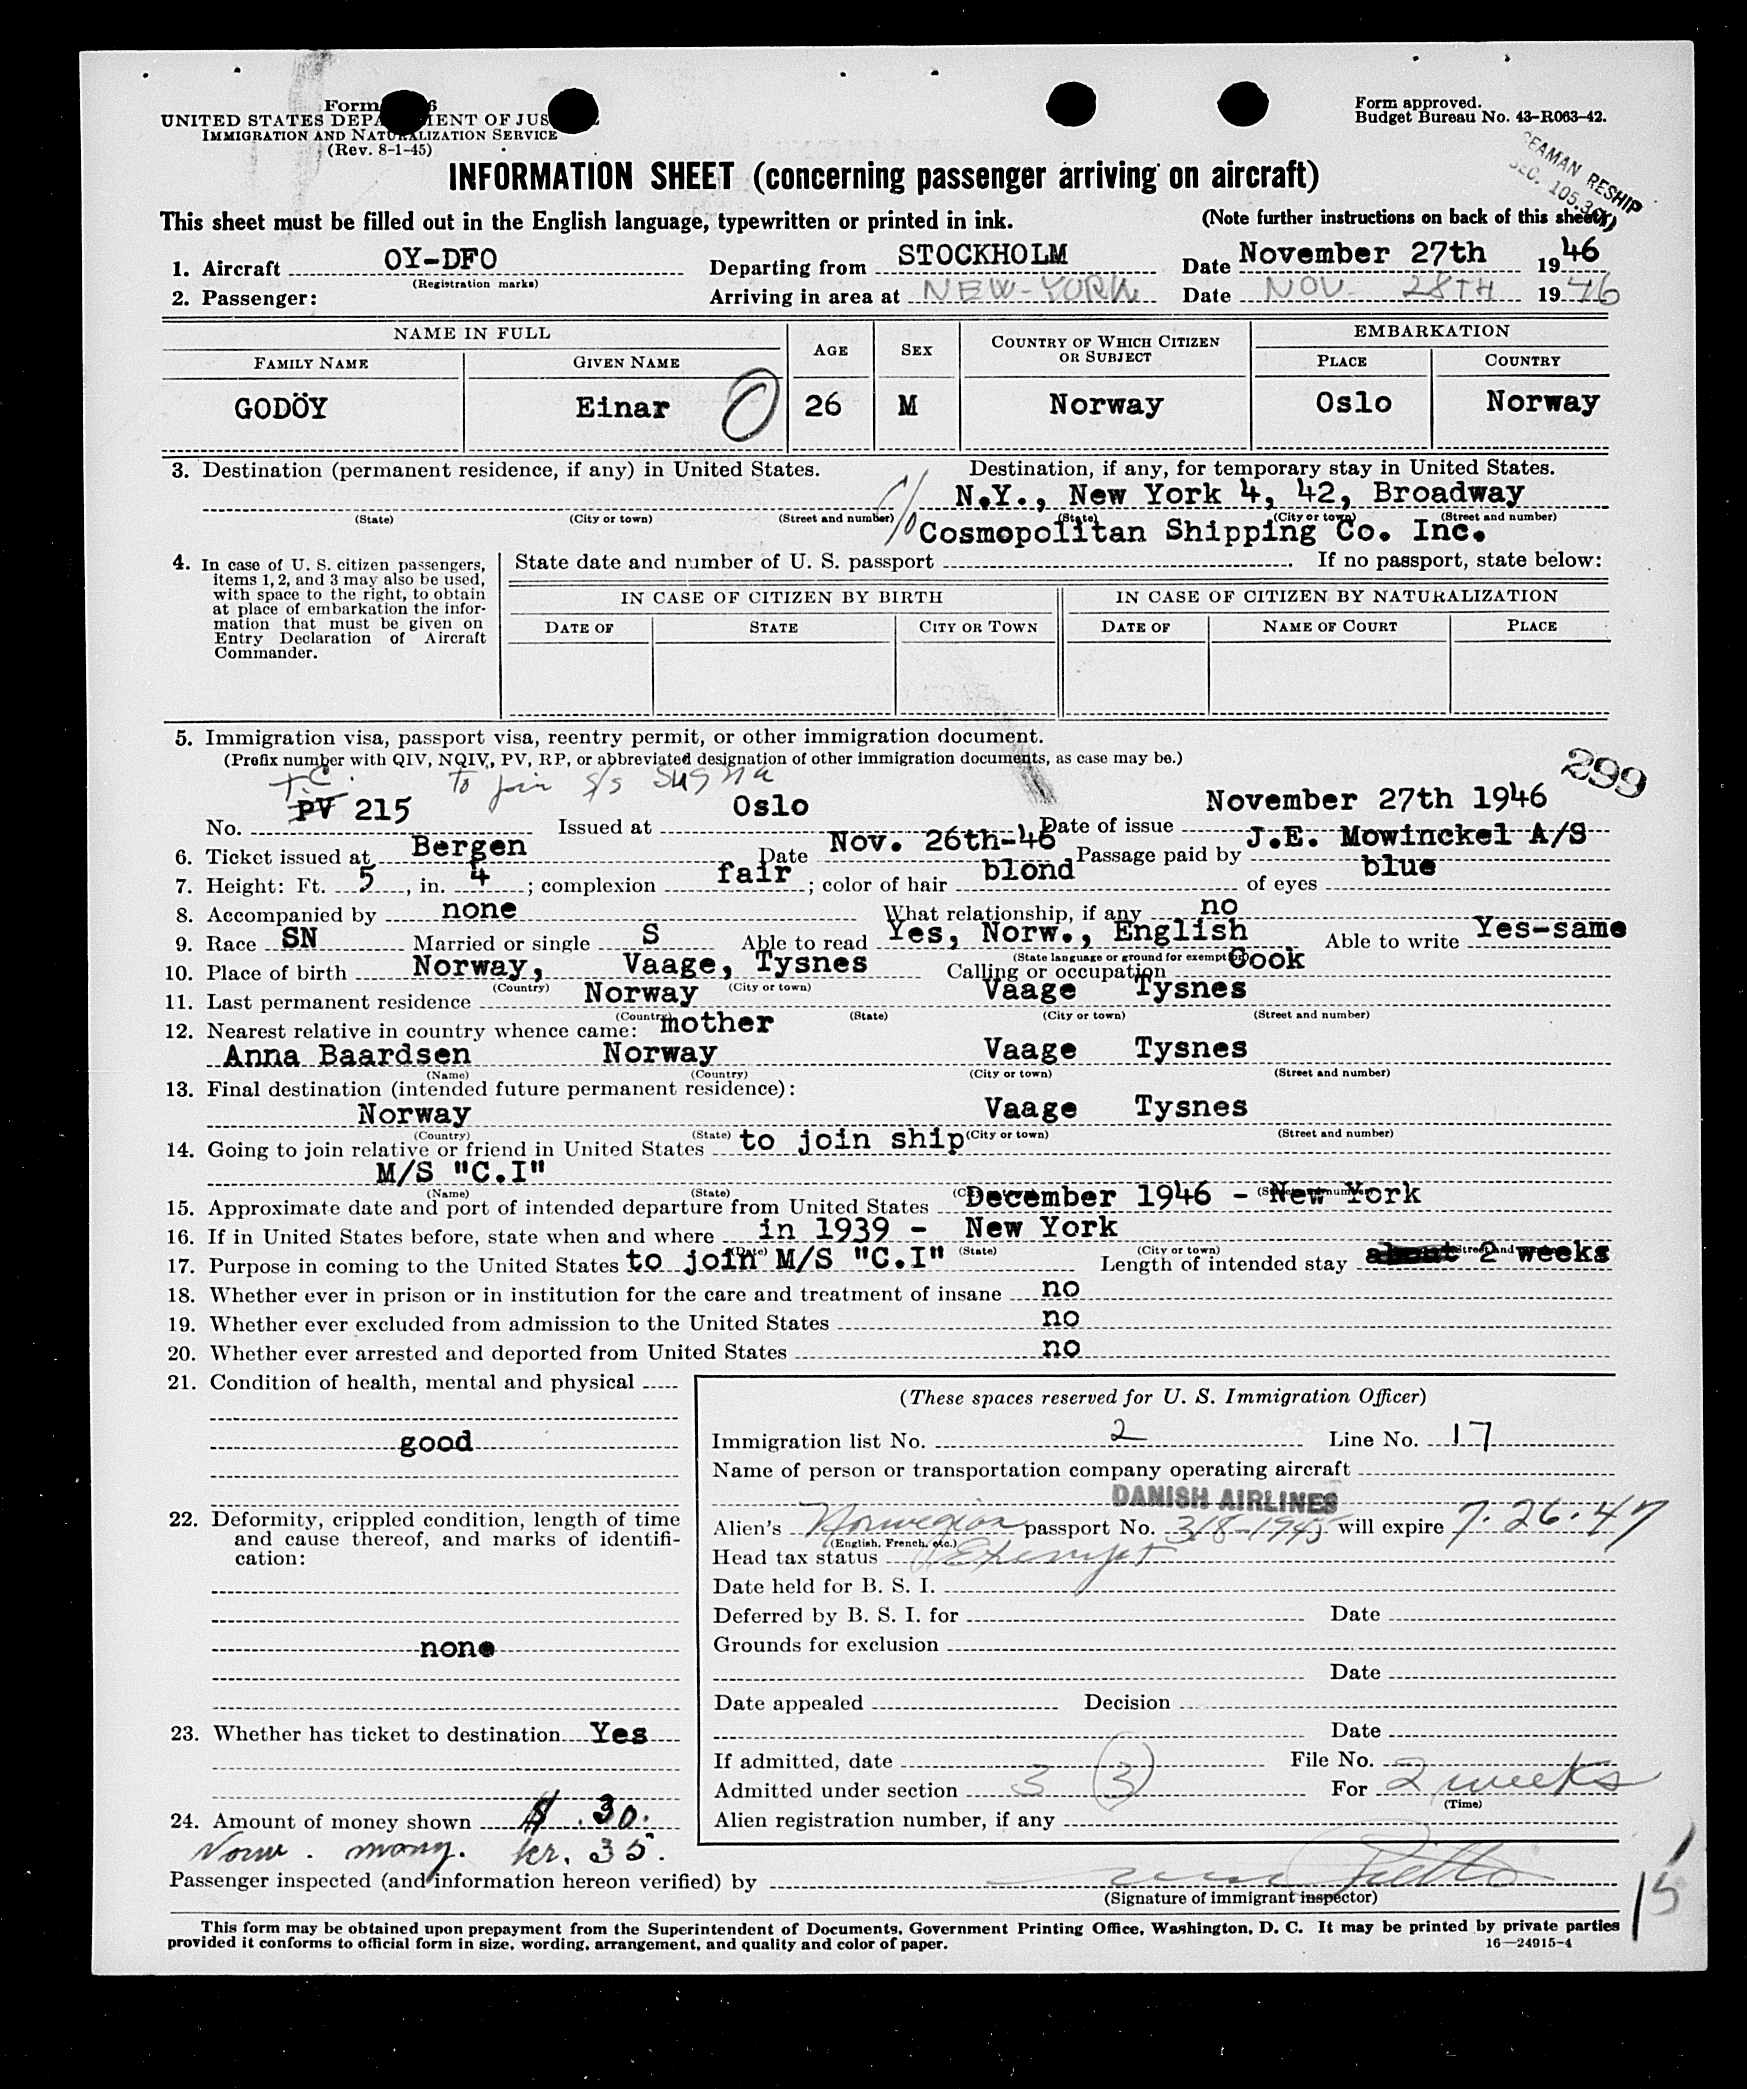 Form 6
UNITED STATES DEPARTMENT OF JUS
IMMIGRATION AND NATURALIZATION SERVICE
(Rev. 8-1-45)
Form approved.
Budget Bureau No. 43-R063-42.
SEAMAN RESHIP
SEC. 105.3(K)
INFORMATION SHEET (concerning passenger arriving on aircraft)
This sheet must be filled out in the English language, typewritten or printed in ink. (Note further instructions on back of this sheet.)
1. Aircraft OY-DFO Departing from STOCKHOLM Date November 27th 1946
(Registration marks)
2. Passenger: Arriving in area at NEW-YORK Date NOV. 28TH 1946
NAME IN FULL AGE SEX COUNTRY OF WHICH CITIZEN OR SUBJECT EMBARKATION
FAMILY NAME GIVEN NAME PLACE COUNTRY
GODÖY Einar O 26 M Norway Oslo Norway
3. Destination (permanent residence, if any) in United States. Destination, if any, for temporary stay in United States.
N.Y., New York 4, 42, Broadway
(State) (City or town) (Street and number) (State) (City or town) (Street and number)
c/o Cosmopolitan Shipping Co. Inc.
4. In case of U. S. citizen passengers, items 1, 2, and 3 may also be used, with space to the right, to obtain at place of embarkation the information that must be given on Entry Declaration of Aircraft Commander.
State date and number of U. S. passport If no passport, state below:
IN CASE OF CITIZEN BY BIRTH IN CASE OF CITIZEN BY NATURALIZATION
DATE OF STATE CITY OR TOWN DATE OF NAME OF COURT PLACE
5. Immigration visa, passport visa, reentry permit, or other immigration document.
(Prefix number with QIV, NQIV, PV, RP, or abbreviated designation of other immigration documents, as case may be.)
299
T.C. To join S/S Sugna
No. PV 215 Issued at Oslo Date of issue November 27th 1946
6. Ticket issued at Bergen Date Nov. 26th-46 Passage paid by J.E. Mowinckel A/S
7. Height: Ft. 5, in. 4; complexion fair; color of hair blond of eyes blue
8. Accompanied by none What relationship, if any no
9. Race SN Married or single S Able to read Yes, Norw., English Able to write Yes-same
(State language or ground for exemption)
10. Place of birth Norway, Vaage, Tysnes Calling or occupation Cook
(Country) (City or town)
11. Last permanent residence Norway Vaage Tysnes
(Country) (State) (City or town) (Street and number)
12. Nearest relative in country whence came: mother
Anna Baardsen Norway Vaage Tysnes
(Name) (Country) (City or town) (Street and number)
13. Final destination (intended future permanent residence):
Norway Vaage Tysnes
(Country) (State) (City or town) (Street and number)
14. Going to join relative or friend in United States to join ship
M/S "C.I"
(Name) (State)
15. Approximate date and port of intended departure from United States December 1946 - New York
16. If in United States before, state when and where in 1939 - New York
(Date) (State) (City or town) (Street and number)
17. Purpose in coming to the United States to join M/S "C.I" Length of intended stay about 2 weeks
18. Whether ever in prison or in institution for the care and treatment of insane no
19. Whether ever excluded from admission to the United States no
20. Whether ever arrested and deported from United States no
21. Condition of health, mental and physical
good
22. Deformity, crippled condition, length of time and cause thereof, and marks of identification:
none
23. Whether has ticket to destination Yes
24. Amount of money shown $ .30.
Norw. mony. kr. 35.
(These spaces reserved for U. S. Immigration Officer)
Immigration list No. 2 Line No. 17
Name of person or transportation company operating aircraft
DANISH AIRLINES
Alien's Norwegian passport No. 318-1945 will expire 7.26.47
(English, French, etc.)
Head tax status Exempt
Date held for B. S. I.
Deferred by B. S. I. for Date
Grounds for exclusion
Date
Date appealed Decision
Date
If admitted, date File No.
Admitted under section 3 (3) For 2 weeks
(Time)
Alien registration number, if any
Passenger inspected (and information hereon verified) by
(Signature of immigrant inspector)
15
This form may be obtained upon prepayment from the Superintendent of Documents, Government Printing Office, Washington, D. C. It may be printed by private parties
provided it conforms to official form in size, wording, arrangement, and quality and color of paper. 16—24915-4